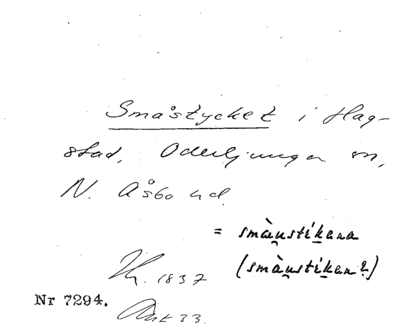 Småstycket i Hag-
stad, Oderljunga sn,
N. Åsbo hd.
= smàu̯stíkana
(smàu̯stíkan?)
1837
Nr 7294. Akt 33.